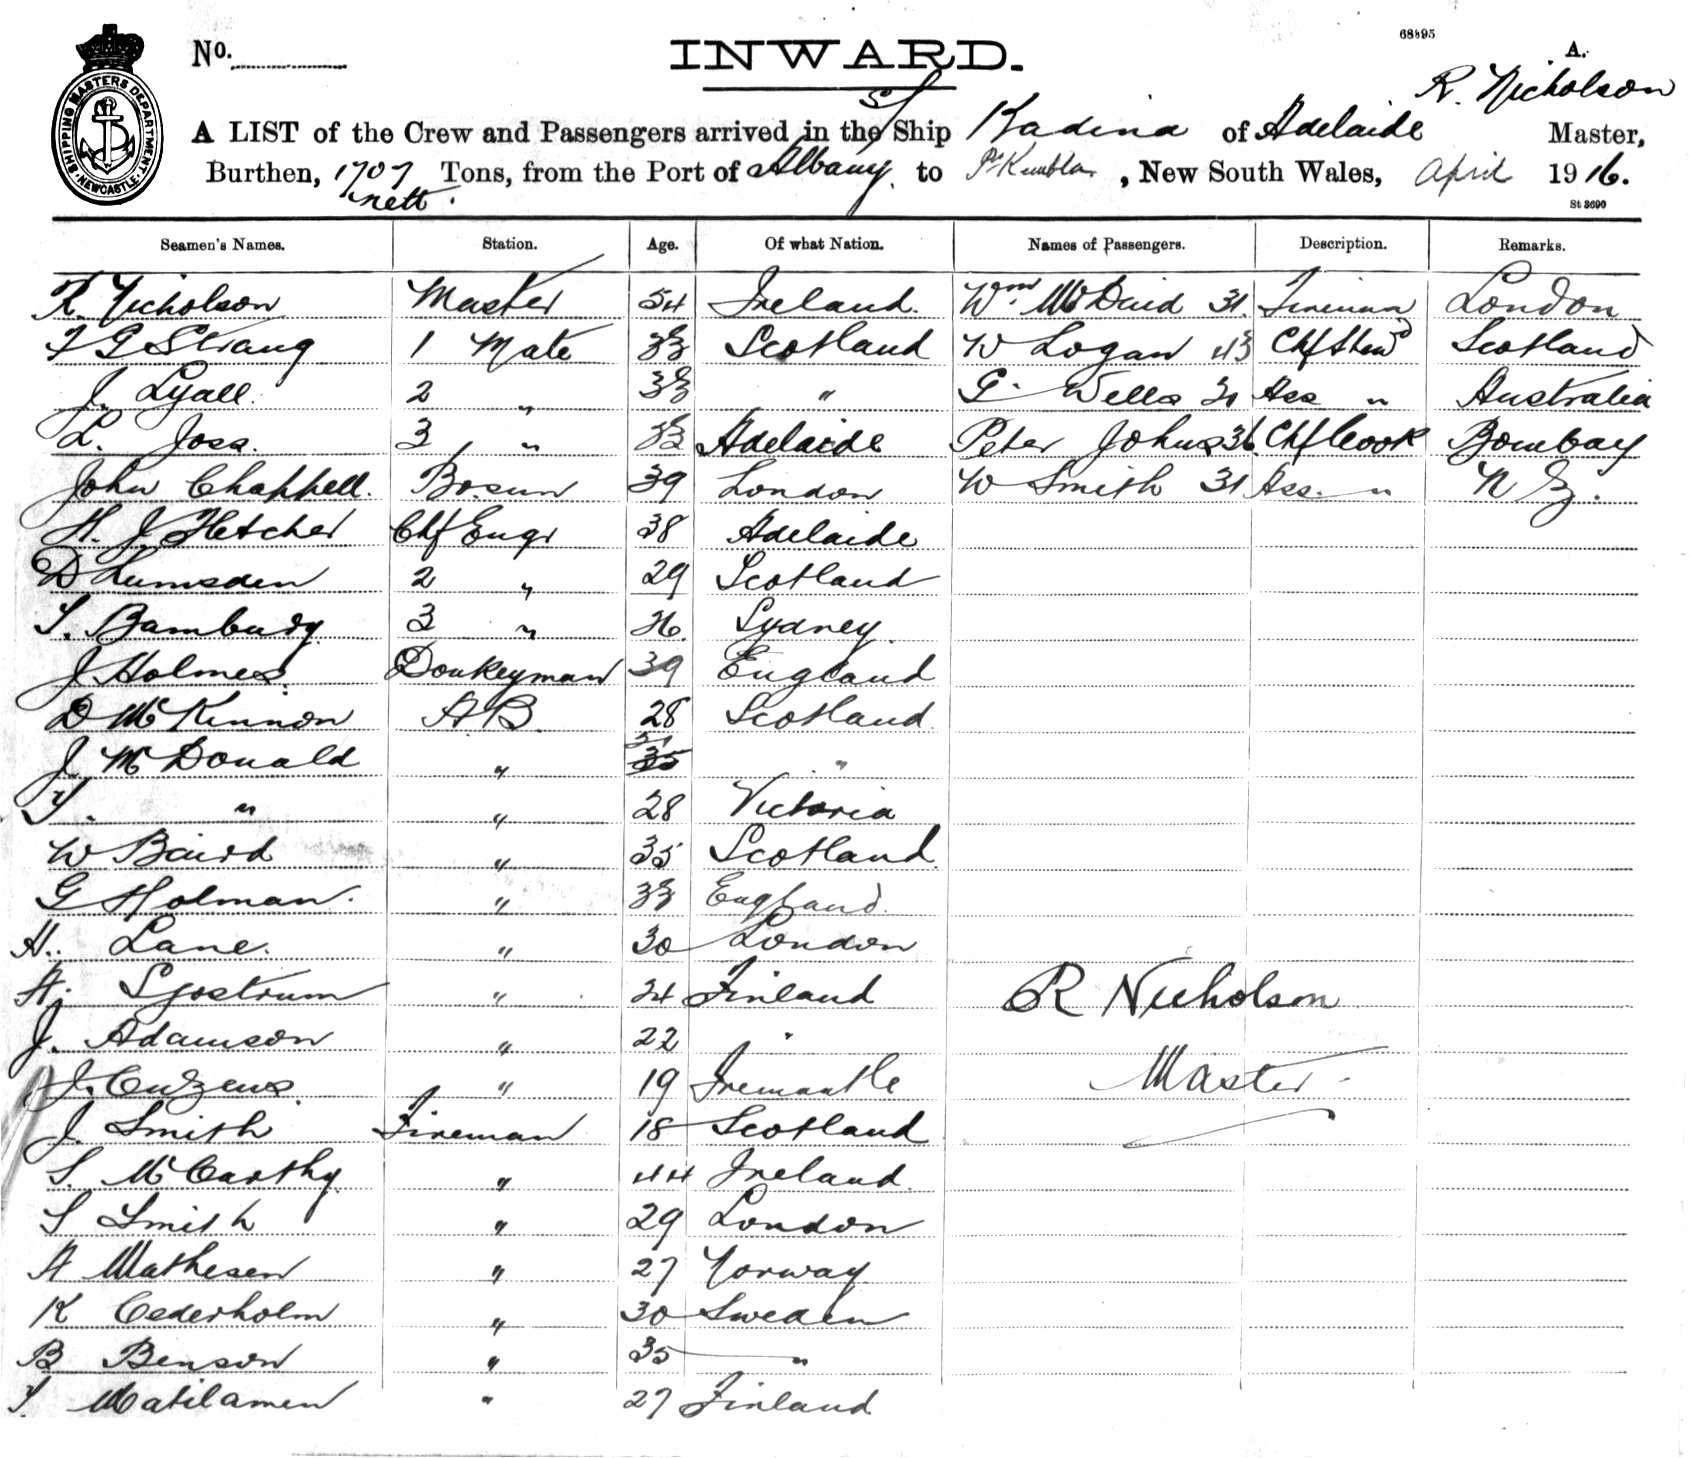 No.
INWARD.
68895
A.
R. Nicholson
A LIST of the Crew and Passengers arrived in the S/ Ship Kadina of Adelaide Master,
Burthen, 1707 nett. Tons, from the Port of Albany to Pt Kembla, New South Wales, April 1916.
St 3690
SHIPPING MASTERS DEPARTMENT NEWCASTLE
Seamen's Names. Station. Age. Of what Nation. Names of Passengers. Description. Remarks.
R. Nicholson Master 54 Ireland. Wm. McDaid 31. Fireman London
F G Strang 1 Mate 33 Scotland W Logan 43 Chf Stewd Scotland
J. Lyall. 2 " 33 " G. Wells 31 Ass " Australia
L. Joss. 3 " 32 Adelaide Peter Johns 36 Chf Cook Bombay
John Chappell. Bosun 39 London W Smith 31 Ass. " N Z.
H. J. Fletcher Chf Engr 38 Adelaide
D Lumsden 2 " 29 Scotland
T. Bambury. 3 " 26. Sydney.
J. Holmes. Donkeyman 39 England
D McKinnon AB 28 Scotland.
J. McDonald " 35 "
T. " " 28 Victoria
W Baird " 35 Scotland.
G Holman. " 33 England.
H. Lane. " 30 London
A. Syostrum " 24 Finland R Nicholson
J. Adamson " 22 "
J. Cuzens. " 19 Fremantle Master.
J. Smith Fireman 18 Scotland
S. McCarthy. " 44 Ireland.
S Smith " 29 London
A Mathesen " 27 Norway
K Cederholm " 30 Sweden
B Benson " 35 "
T. Matilamen " 27 Finland